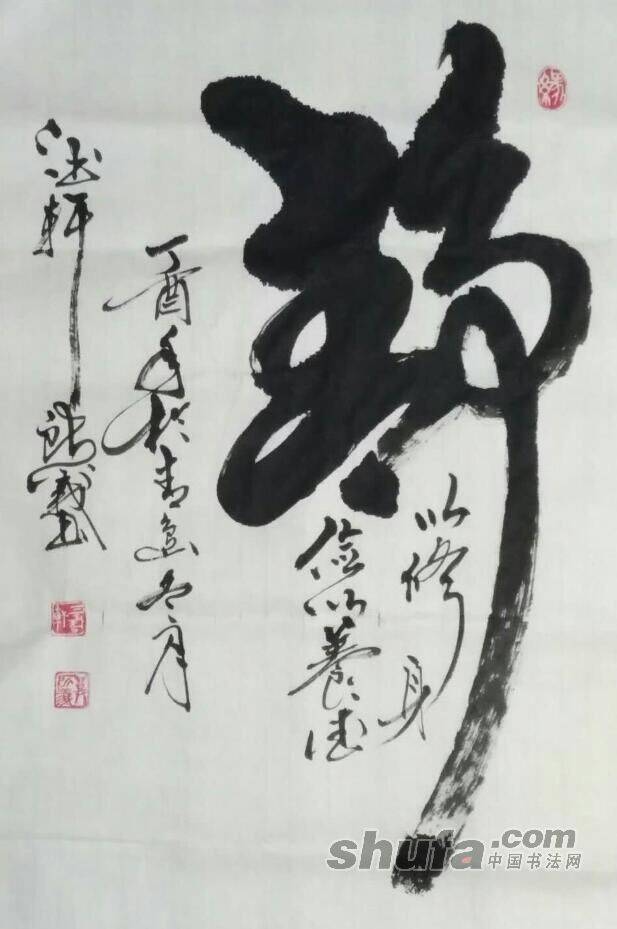 静
以修身
俭以养德
丁酉年于青岛冬月
法轩
shufa.com
中国书法网